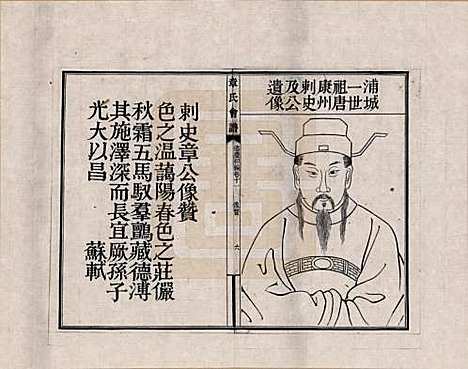 浦城
一世
祖唐
康州
刺史
及公
遺像
章氏會譜
刺史章公像贊
色之温藹陽春色之莊儼
秋霜五馬馭羣鸝藏德溥
其施澤深而長宜厥孫子
光大以昌
蘇軾